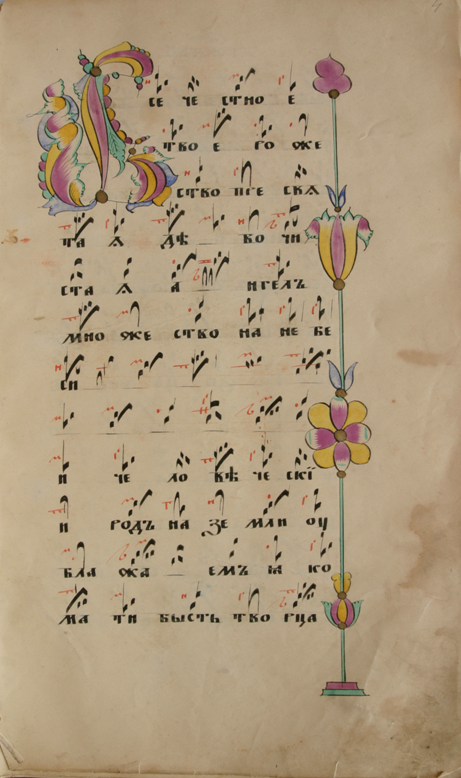 СЕ ЧЕ СТНО Е
ТВО Е ГО ЖЕ
СТВО ПРЕ СКА
ТА Ѧ ДѢ ВО ЧИ
СТА Ѧ А НГЕЛЪ
МНО ЖЕ СТВО НА НЕ БЕ
СИ
И ЧЕ ЛО ВѢ ЧЕ СКЇ
И РОДЪ НА ЗЕ МЛИ ОУ
БЛА ЖА ЕМЪ ꙖКО
МА ТИ БЫСТЬ ТВО РЦА